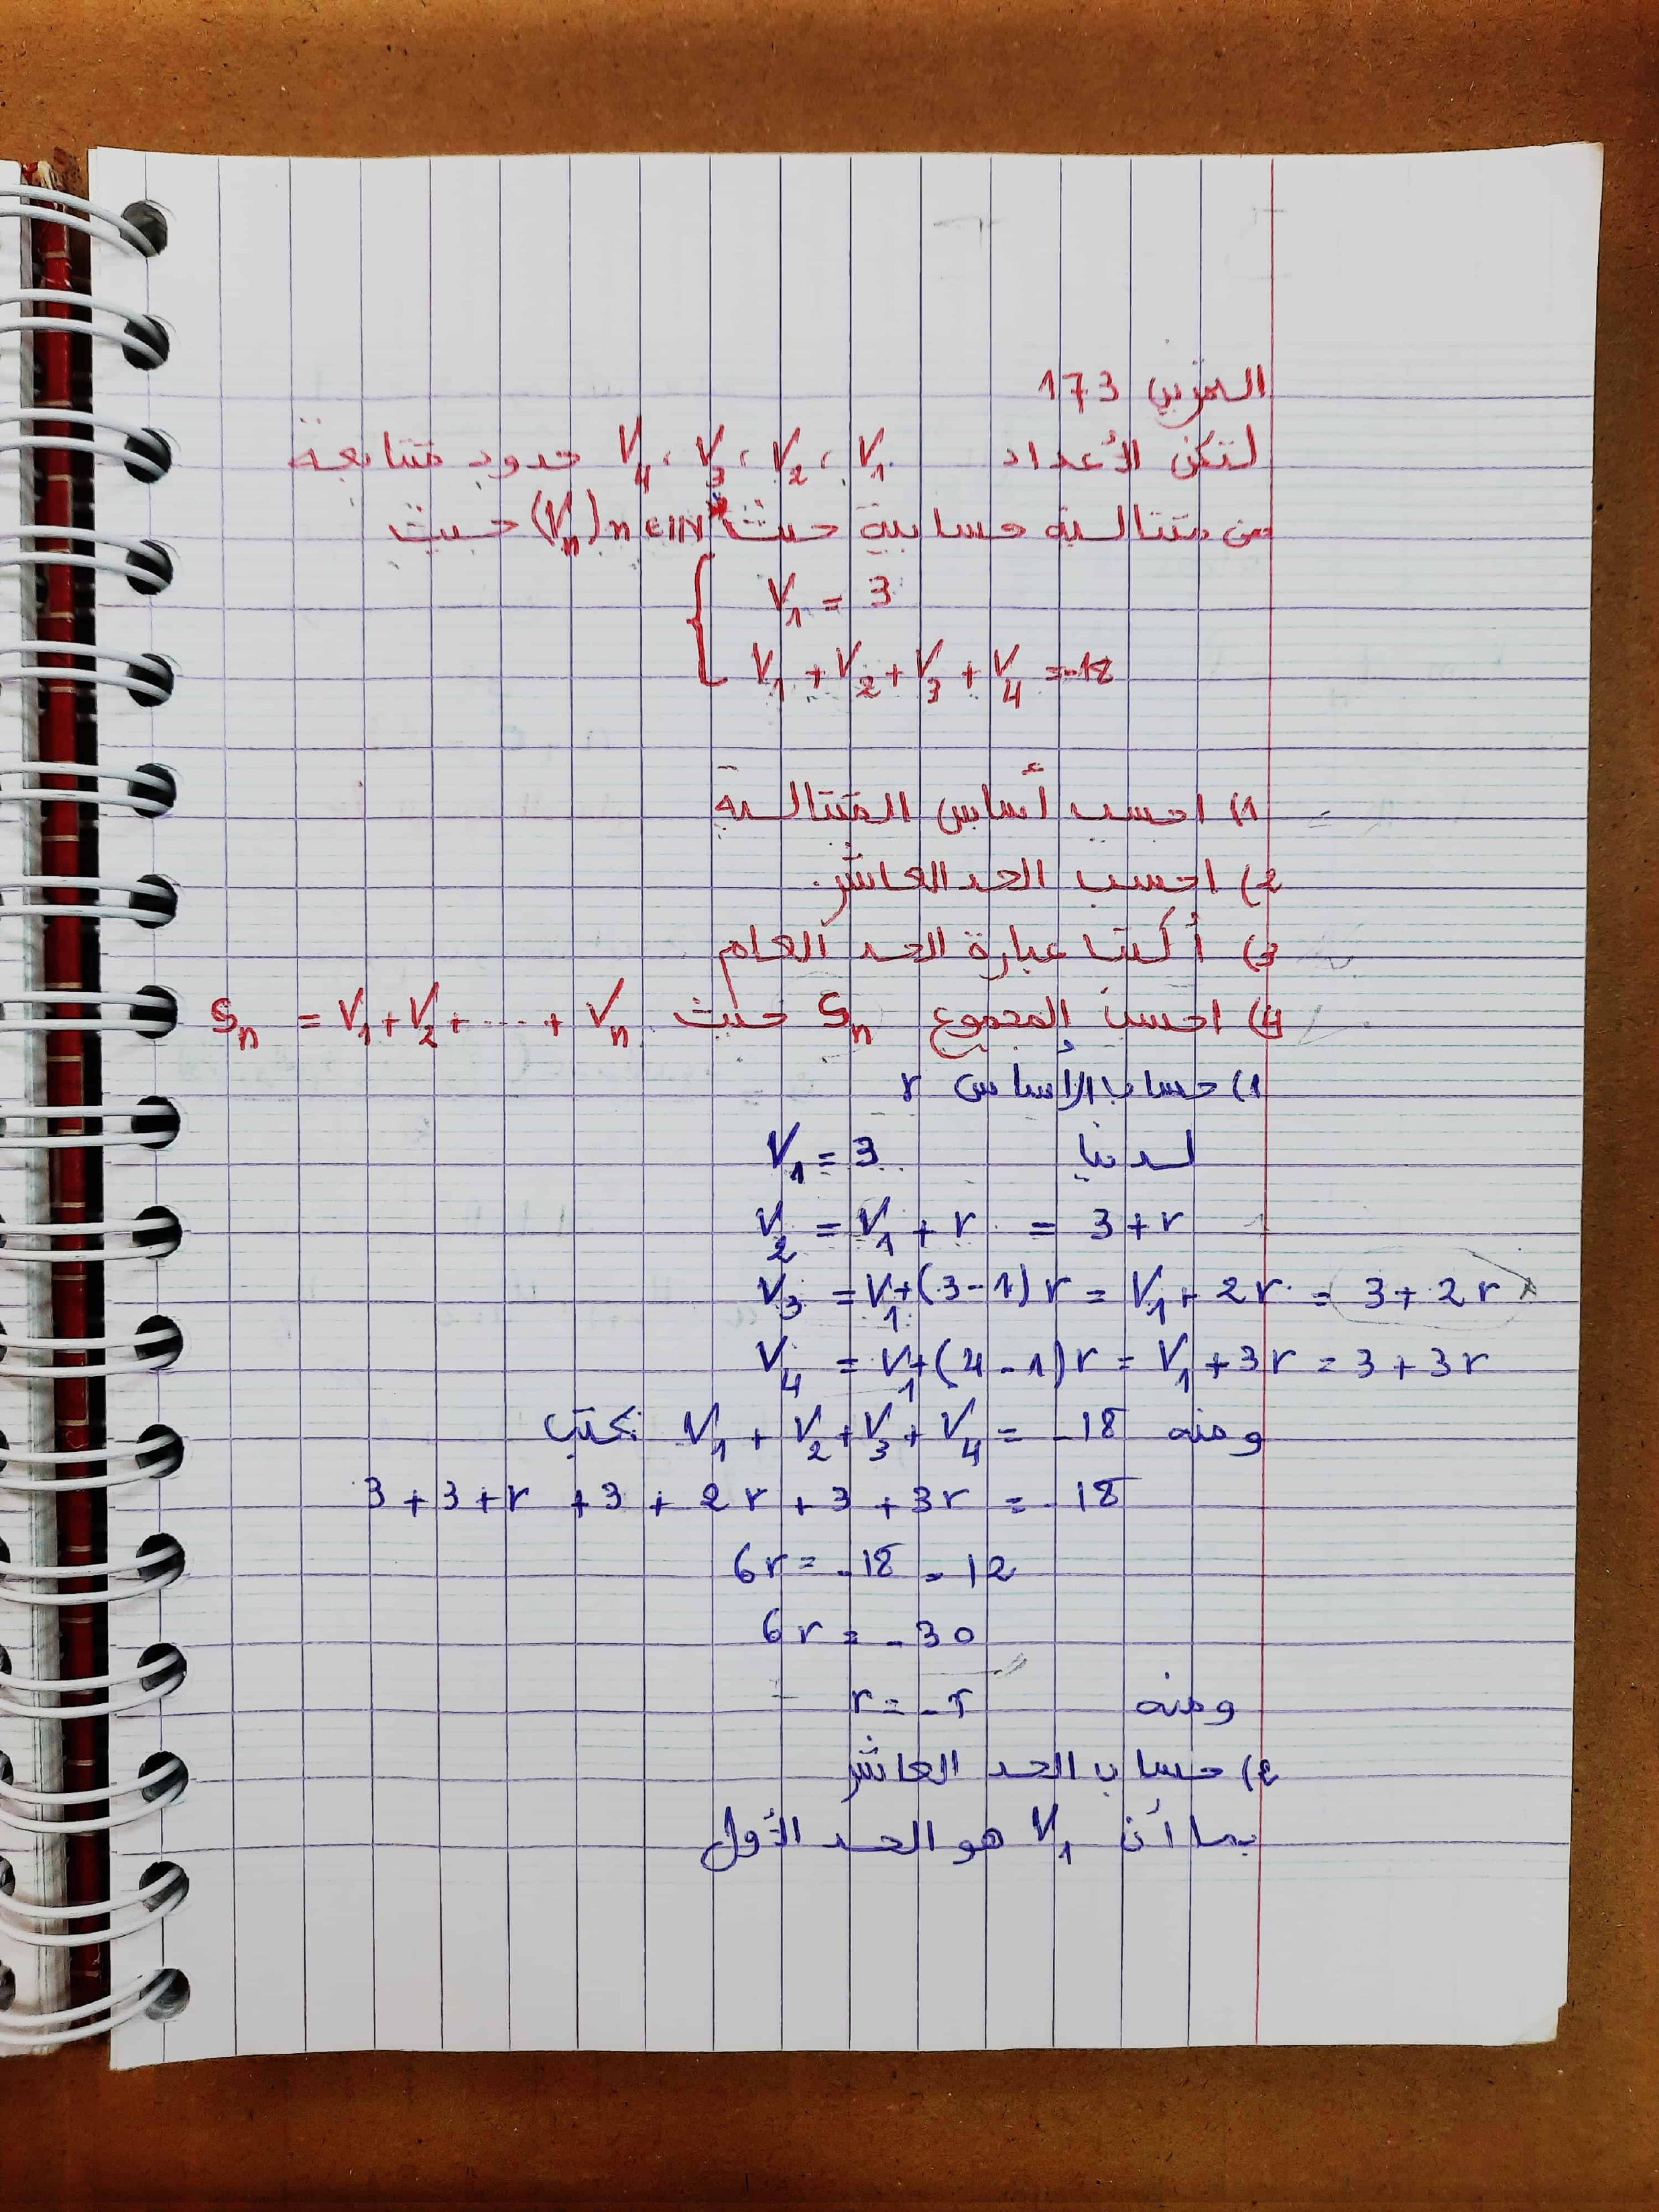 التمرين 173
لتكن الأعداد V₁ ، V₂ ، V₃ ، V₄ حدود متتابعة
من متتالية حسابية حيث (Vₙ) n∈ℕ* حيث
{ V₁ = 3
V₁ + V₂ + V₃ + V₄ = -18
1) احسب أساس المتتالية
2) احسب الحد العاشر.
3) أكتب عبارة الحد العام
4) احسب المجموع Sₙ حيث Sₙ = V₁ + V₂ + .... + Vₙ
1) حساب الأساس r
لدينا V₁ = 3
V₂ = V₁ + r = 3 + r
V₃ = V₁ + (3 - 1) r = V₁ + 2r = 3 + 2r
V₄ = V₁ + (4 - 1) r = V₁ + 3r = 3 + 3r
ومنه V₁ + V₂ + V₃ + V₄ = -18 تكتب
3 + 3 + r + 3 + 2r + 3 + 3r = -18
6r = -18 - 12
6r = -30
ومنه r = -5
2) حساب الحد العاشر
بما أن V₁ هو الحد الأول